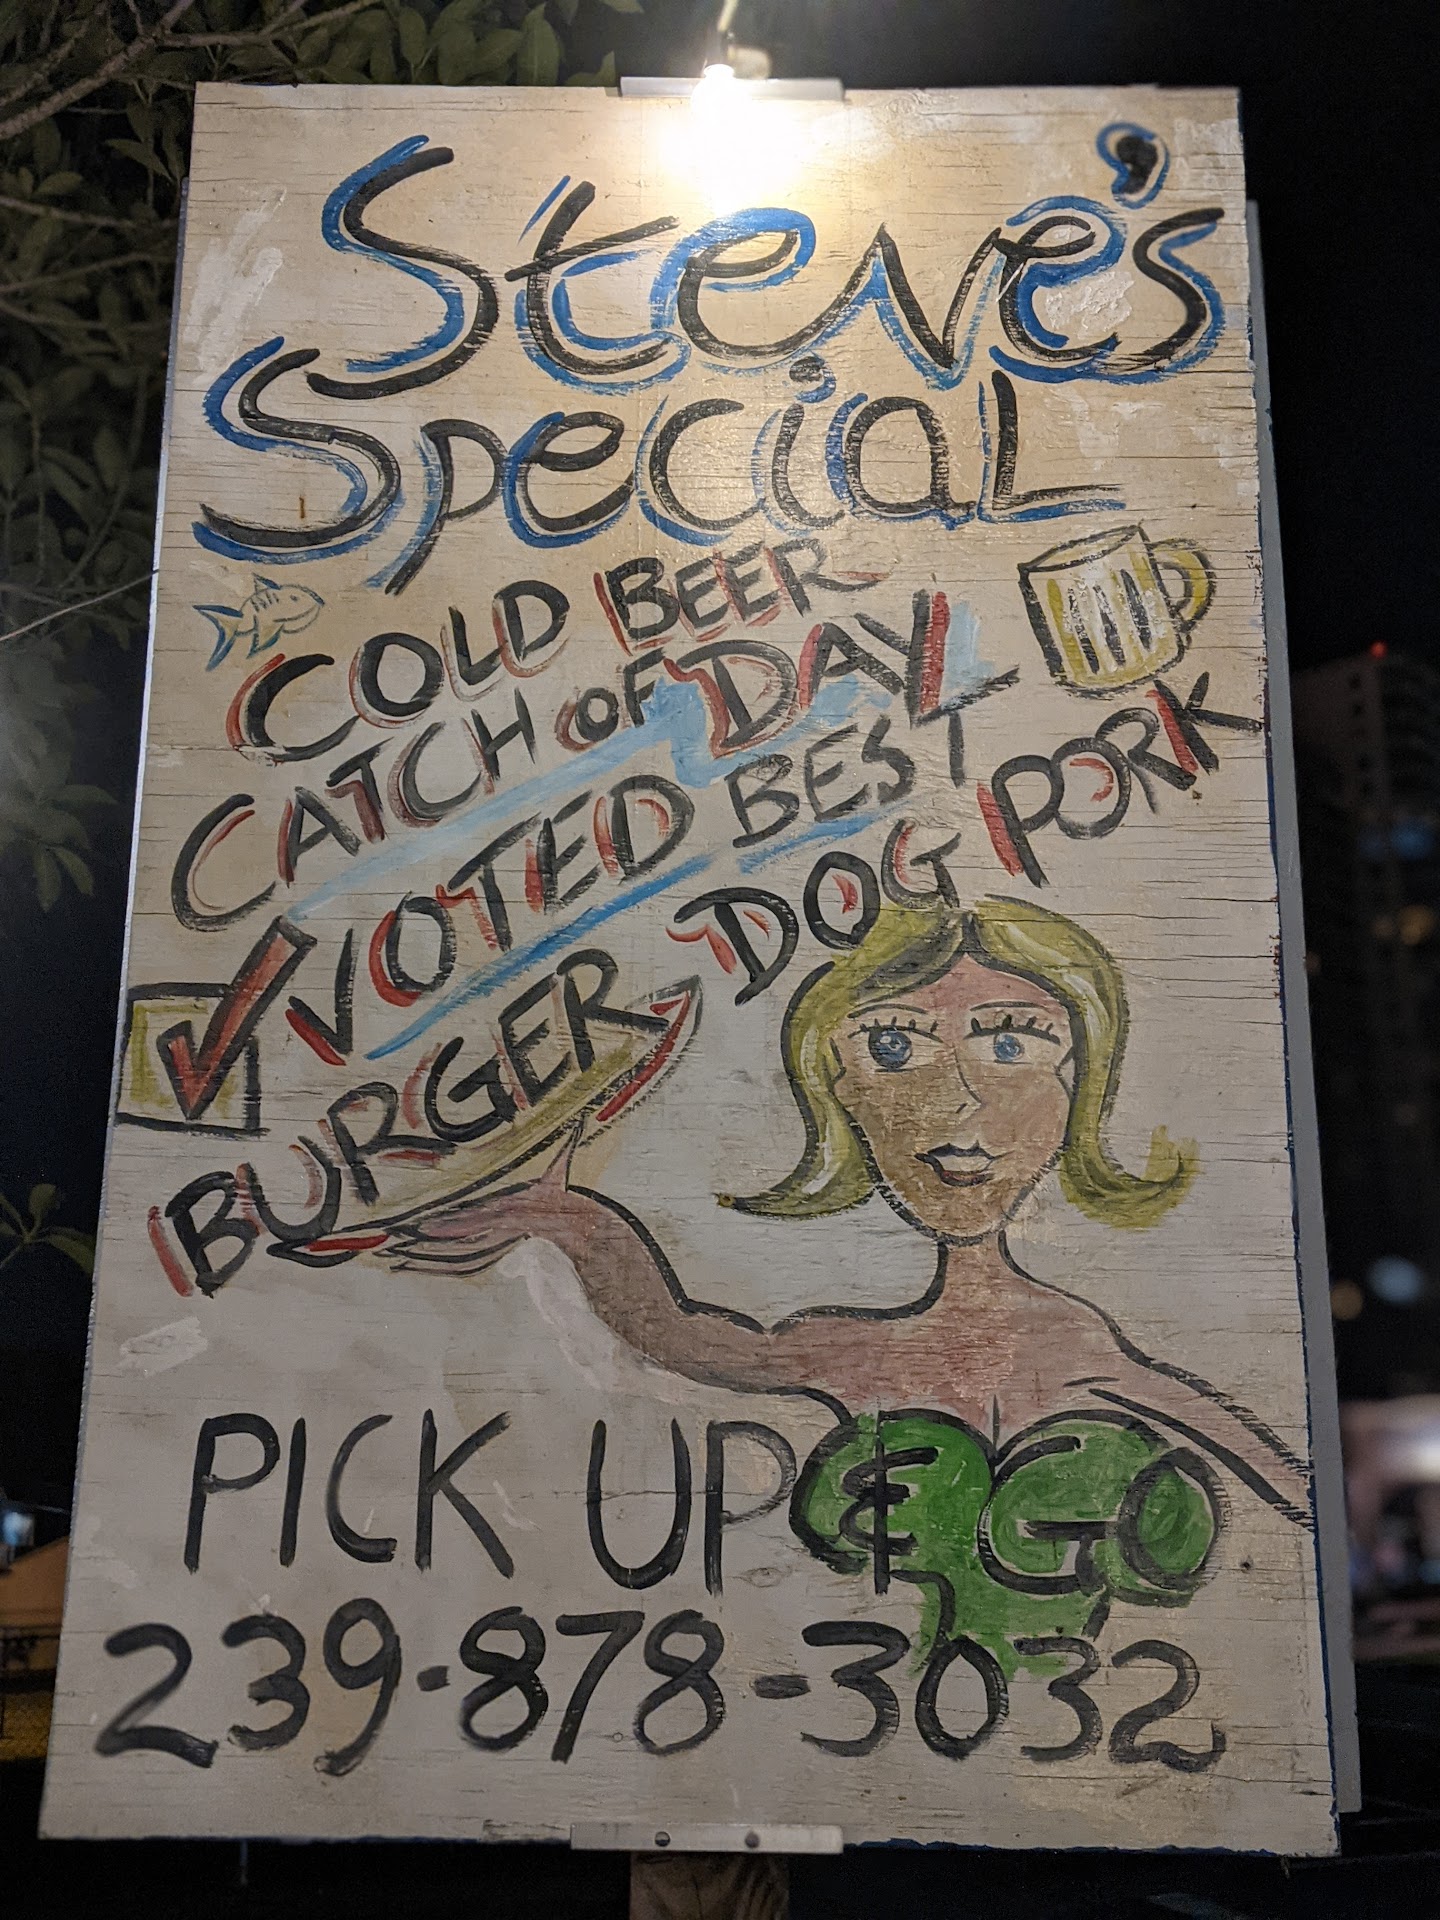 Steve's
Special
COLD BEER
CATCH OF DAY
VOTED BEST
BURGER DOG PORK
PICK UP & GO
239-878-3032